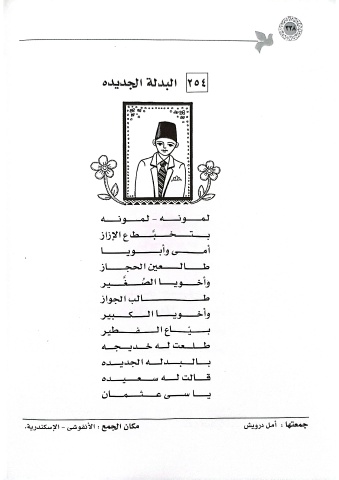 ٢٢٨
٢٥٤ البدلة الجديده
لمونه - لمونه
بتخبَّط ع الإزاز
أمى وأبويا
طالعين الحجاز
وأخويا الصُغَّير
طالب الجواز
وأخويا الكبير
بيَّاع الفطير
طلعت له خديجه
بالبدله الجديده
قالت له سعيده
يا سى عثمان
جمعتها : أمل درويش
مكان الجمع : الأنفوشى - الإسكندرية.